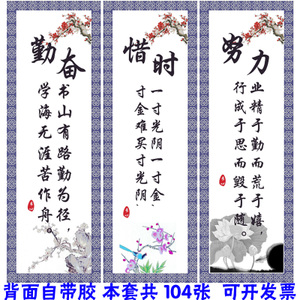 勤奋
书山有路勤为径，
学海无涯苦作舟。
惜时
一寸光阴一寸金，
寸金难买寸光阴。
努力
业精于勤而荒于嬉，
行成于思而毁于随
背面自带胶 本套共 104张 可开发票